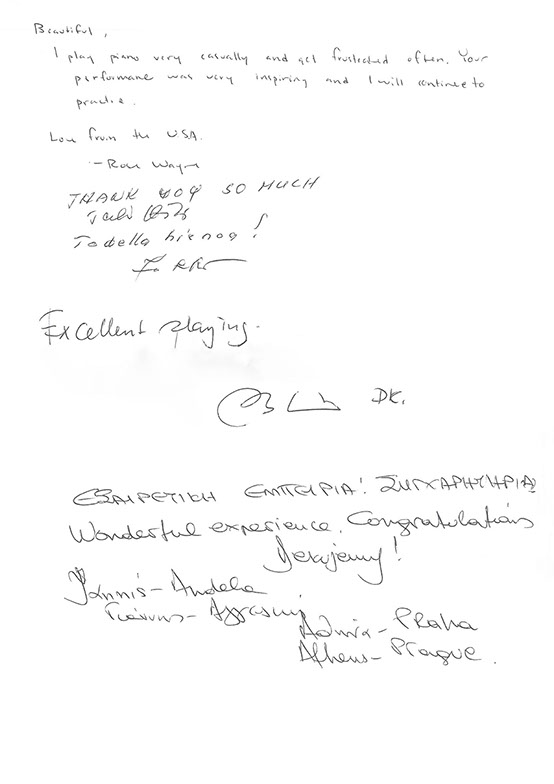 Beautiful,
I play piano very casually and get frustrated often. Your
performane was very inspiring and I will continue to
practice.
Love from the USA.
- Rose Wayne
THANK YOU SO MUCH
Todella hienoa!
Excellent playing.
DK.
ΕΞΑΙΡΕΤΙΚΗ ΕΜΠΕΙΡΙΑ! ΣΥΓΧΑΡΗΤΗΡΙΑ
Wonderful experience. Congratulations
Dekujemy!
Yannis - Andela
Γιάννης -
Αθήνα - Praha
Athens - Prague.